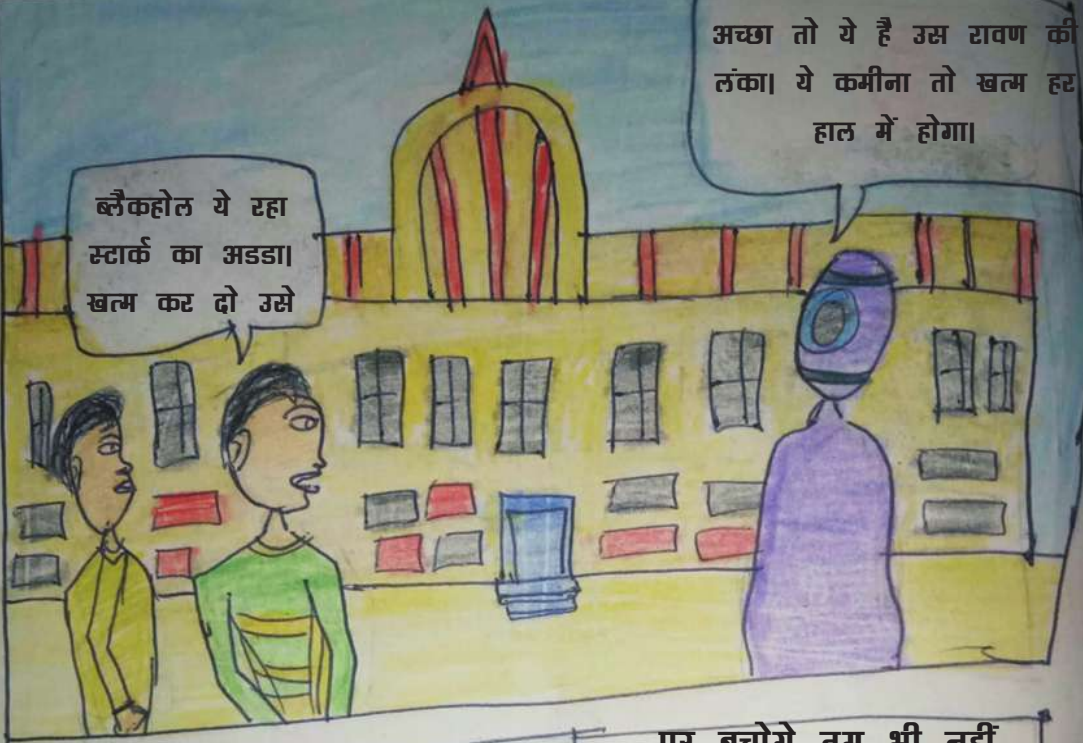 ब्लैकहोल ये रहा
स्टार्क का अडडा।
खत्म कर दो उसे
अच्छा तो ये है उस रावण की
लंका। ये कमीना तो खत्म हर
हाल में होगा।
पर बचोगे तुम भी नहीं